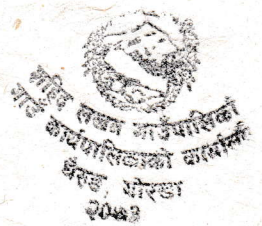 शहिद लखन गाउँपालिका
गाउँ कार्यपालिकाको कार्यालय
गोरखा
२०७३